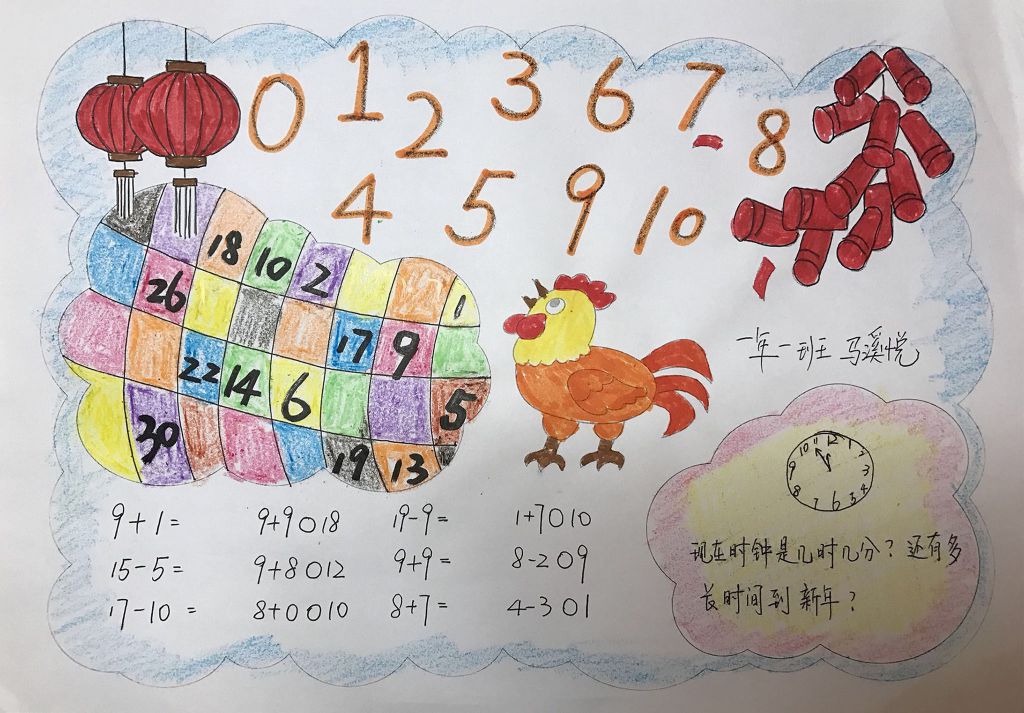 0 1 2 3 6 7 8
4 5 9 10
18 10 2
26 1
17 9
22 14 6 5
30 19 13
一年一班 马溪悦
10 11 12 1 2
9 3
8 7 6 5 4
9+1= 9+9○18 19-9= 1+7○10
15-5= 9+8○12 9+9= 8-2○9
17-10= 8+0○10 8+7= 4-3○1
现在时钟是几时几分？还有多
长时间到新年？